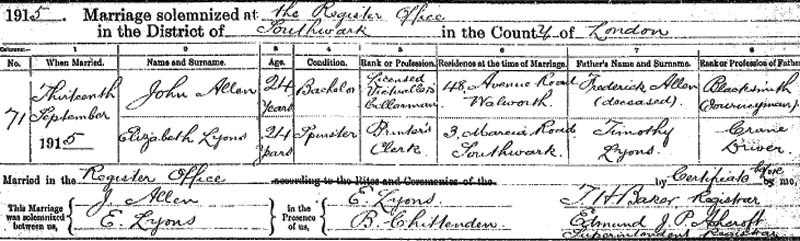 1915. Marriage solemnized at the Register Office
in the District of Southwark in the County of London
Columns:— 1 2 3 4 5 6 7 8
No. When Married. Name and Surname. Age. Condition. Rank or Profession. Residence at the time of Marriage. Father's Name and Surname. Rank or Profession of Father
71 Thirteenth September 1915
John Allen 24 Years Bachelor Licensed Victuallers Cellarman 48, Avenue Road Walworth Frederick Allen (deceased) Blacksmith (Journeyman)
Elizabeth Lyons 24 Years Spinster Printer's Clerk 3, Marcia Road Southwark Timothy Lyons Crane Driver
Married in the Register Office according to the Rites and Ceremonies of the by Certificate before by me,
This Marriage was solemnized between us, J. Allen E. Lyons
In the Presence of us, E. Lyons B. Chittenden
T H Baker Registrar
Edmund J. P. Superintendent Registrar